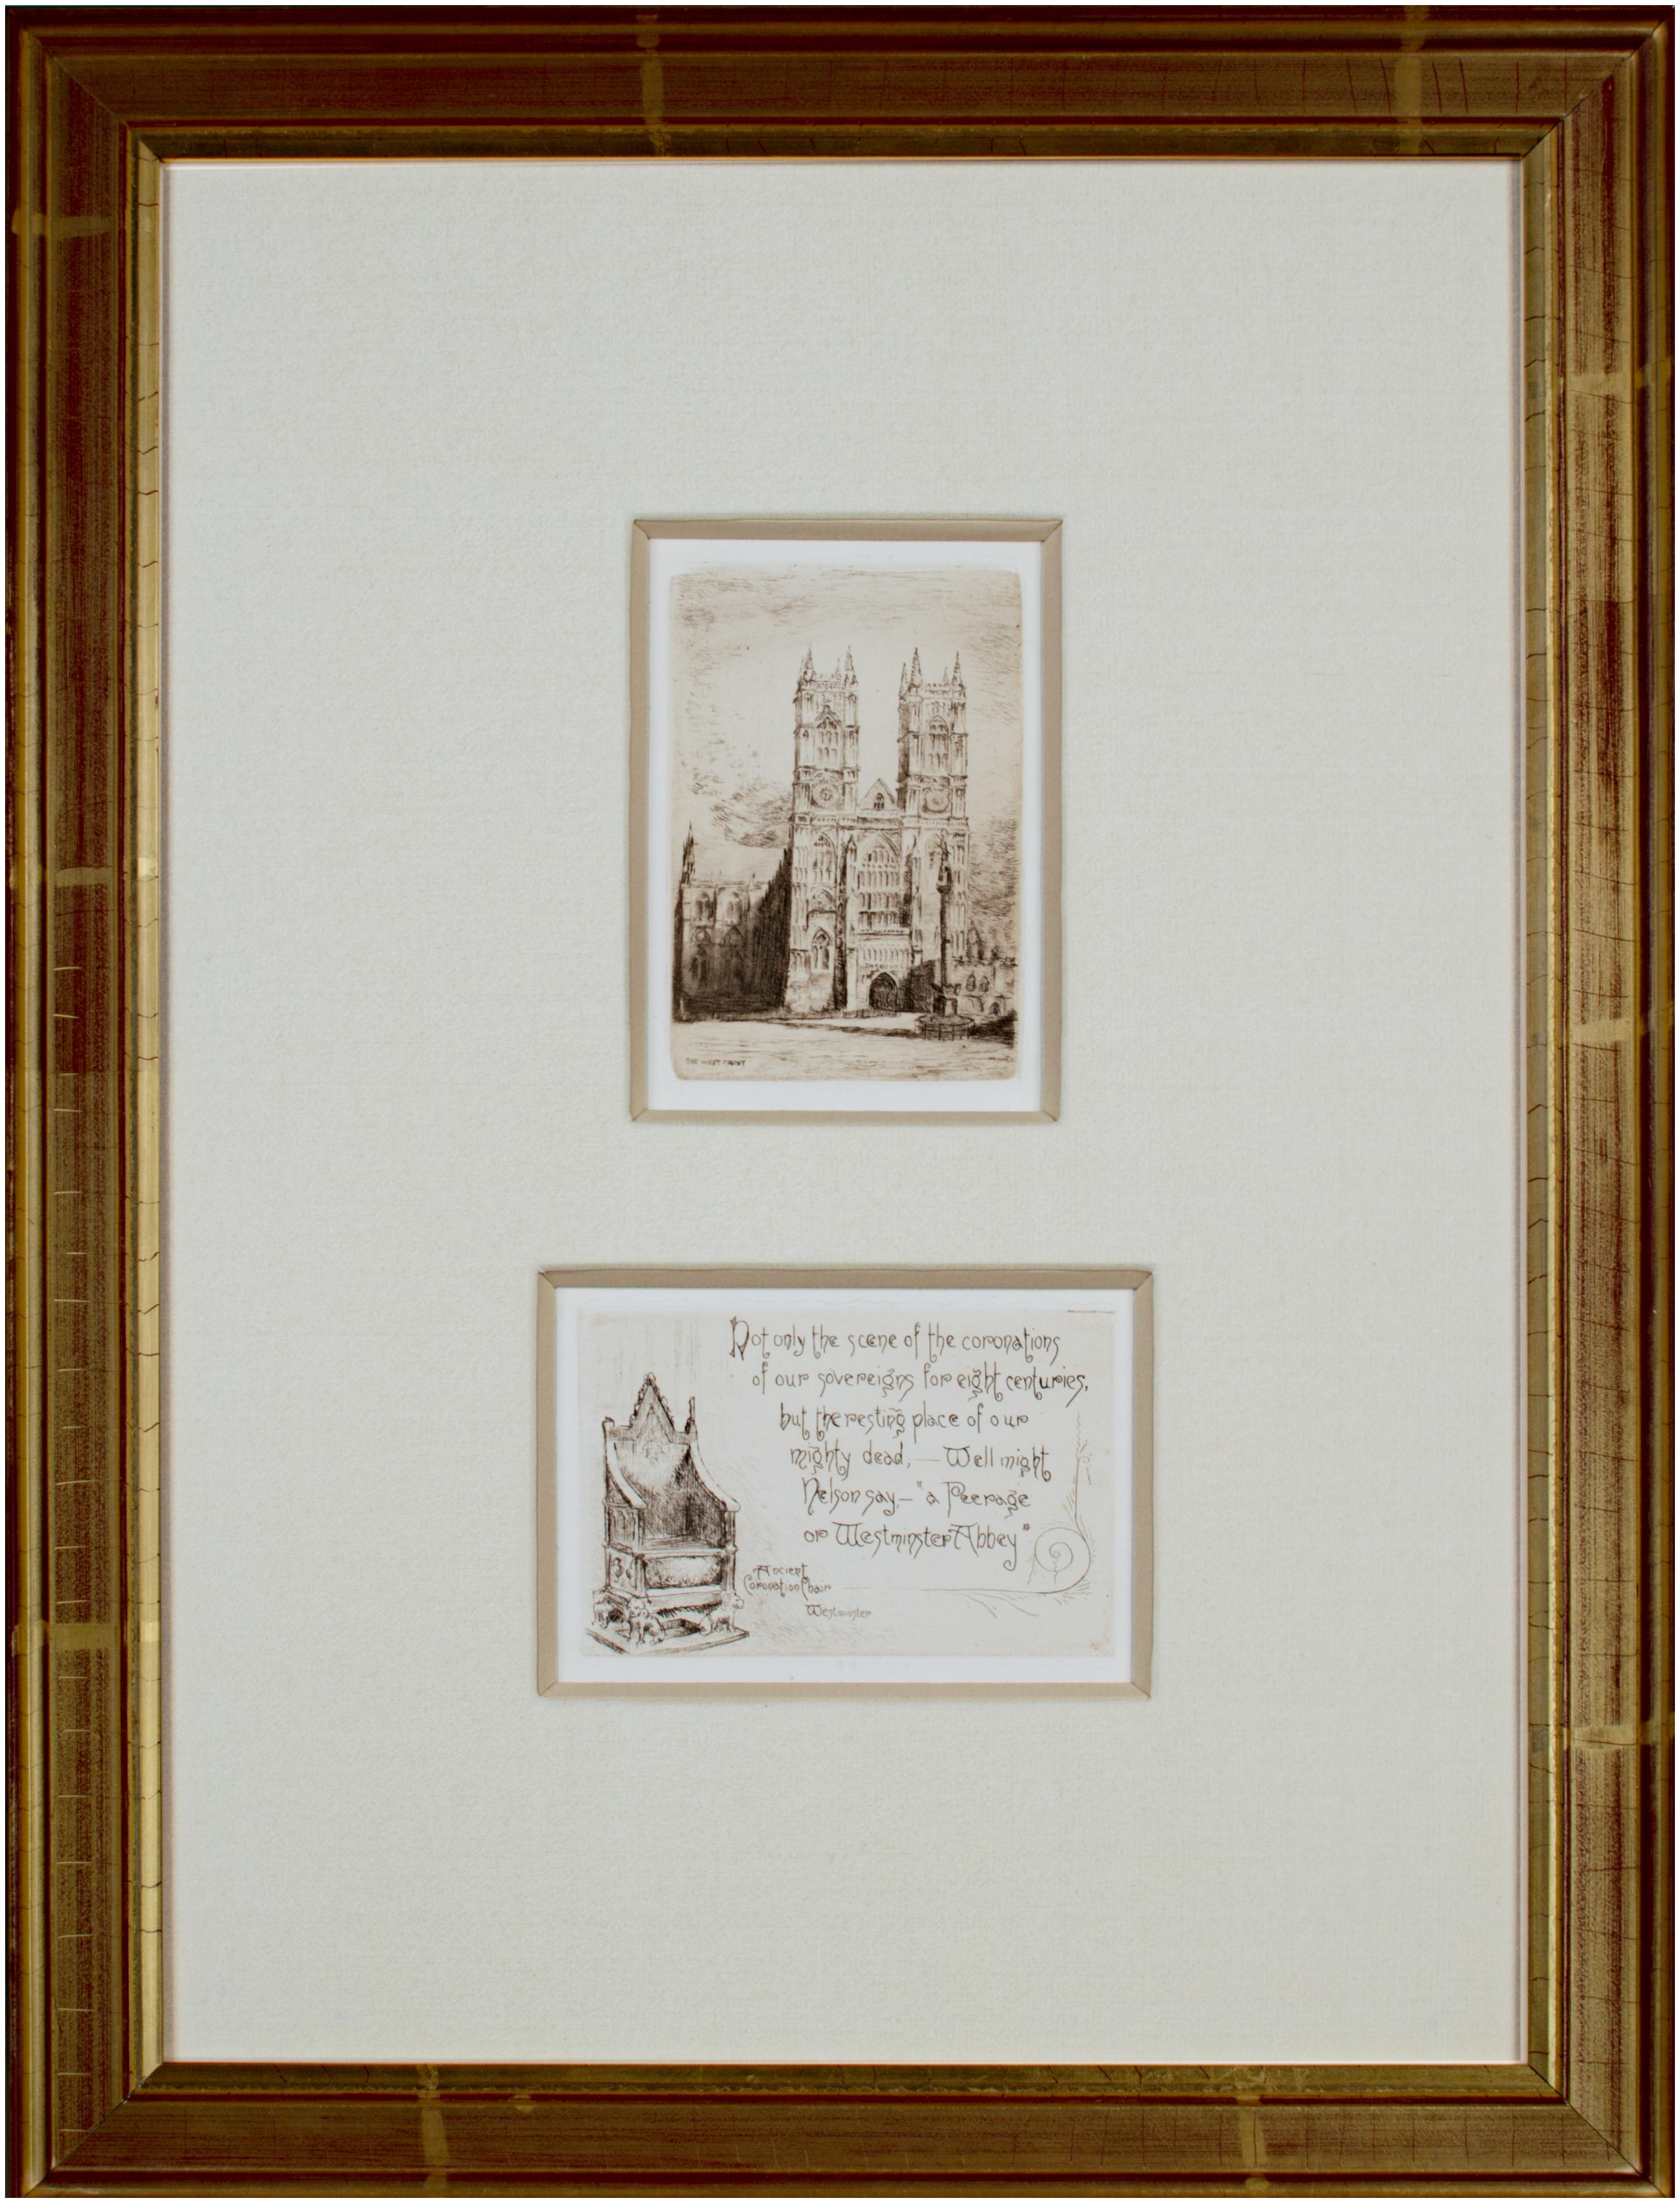 THE WEST FRONT
Not only the scene of the coronations
of our sovereigns for eight centuries,
but the resting place of our
mighty dead, — Well might
Nelson say,— "a Peerage
or Westminster Abbey"
Ancient
Coronation Chair
Westminster